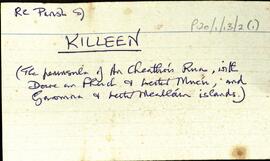 RC Parish of
P20/1/13/2(1)
KILLEEN
(The peninsula of An Cheathrú Rua, with
Doire an Fhéich & Leitir Mucú, and
Garomna & Leitir Mealláin islands.)